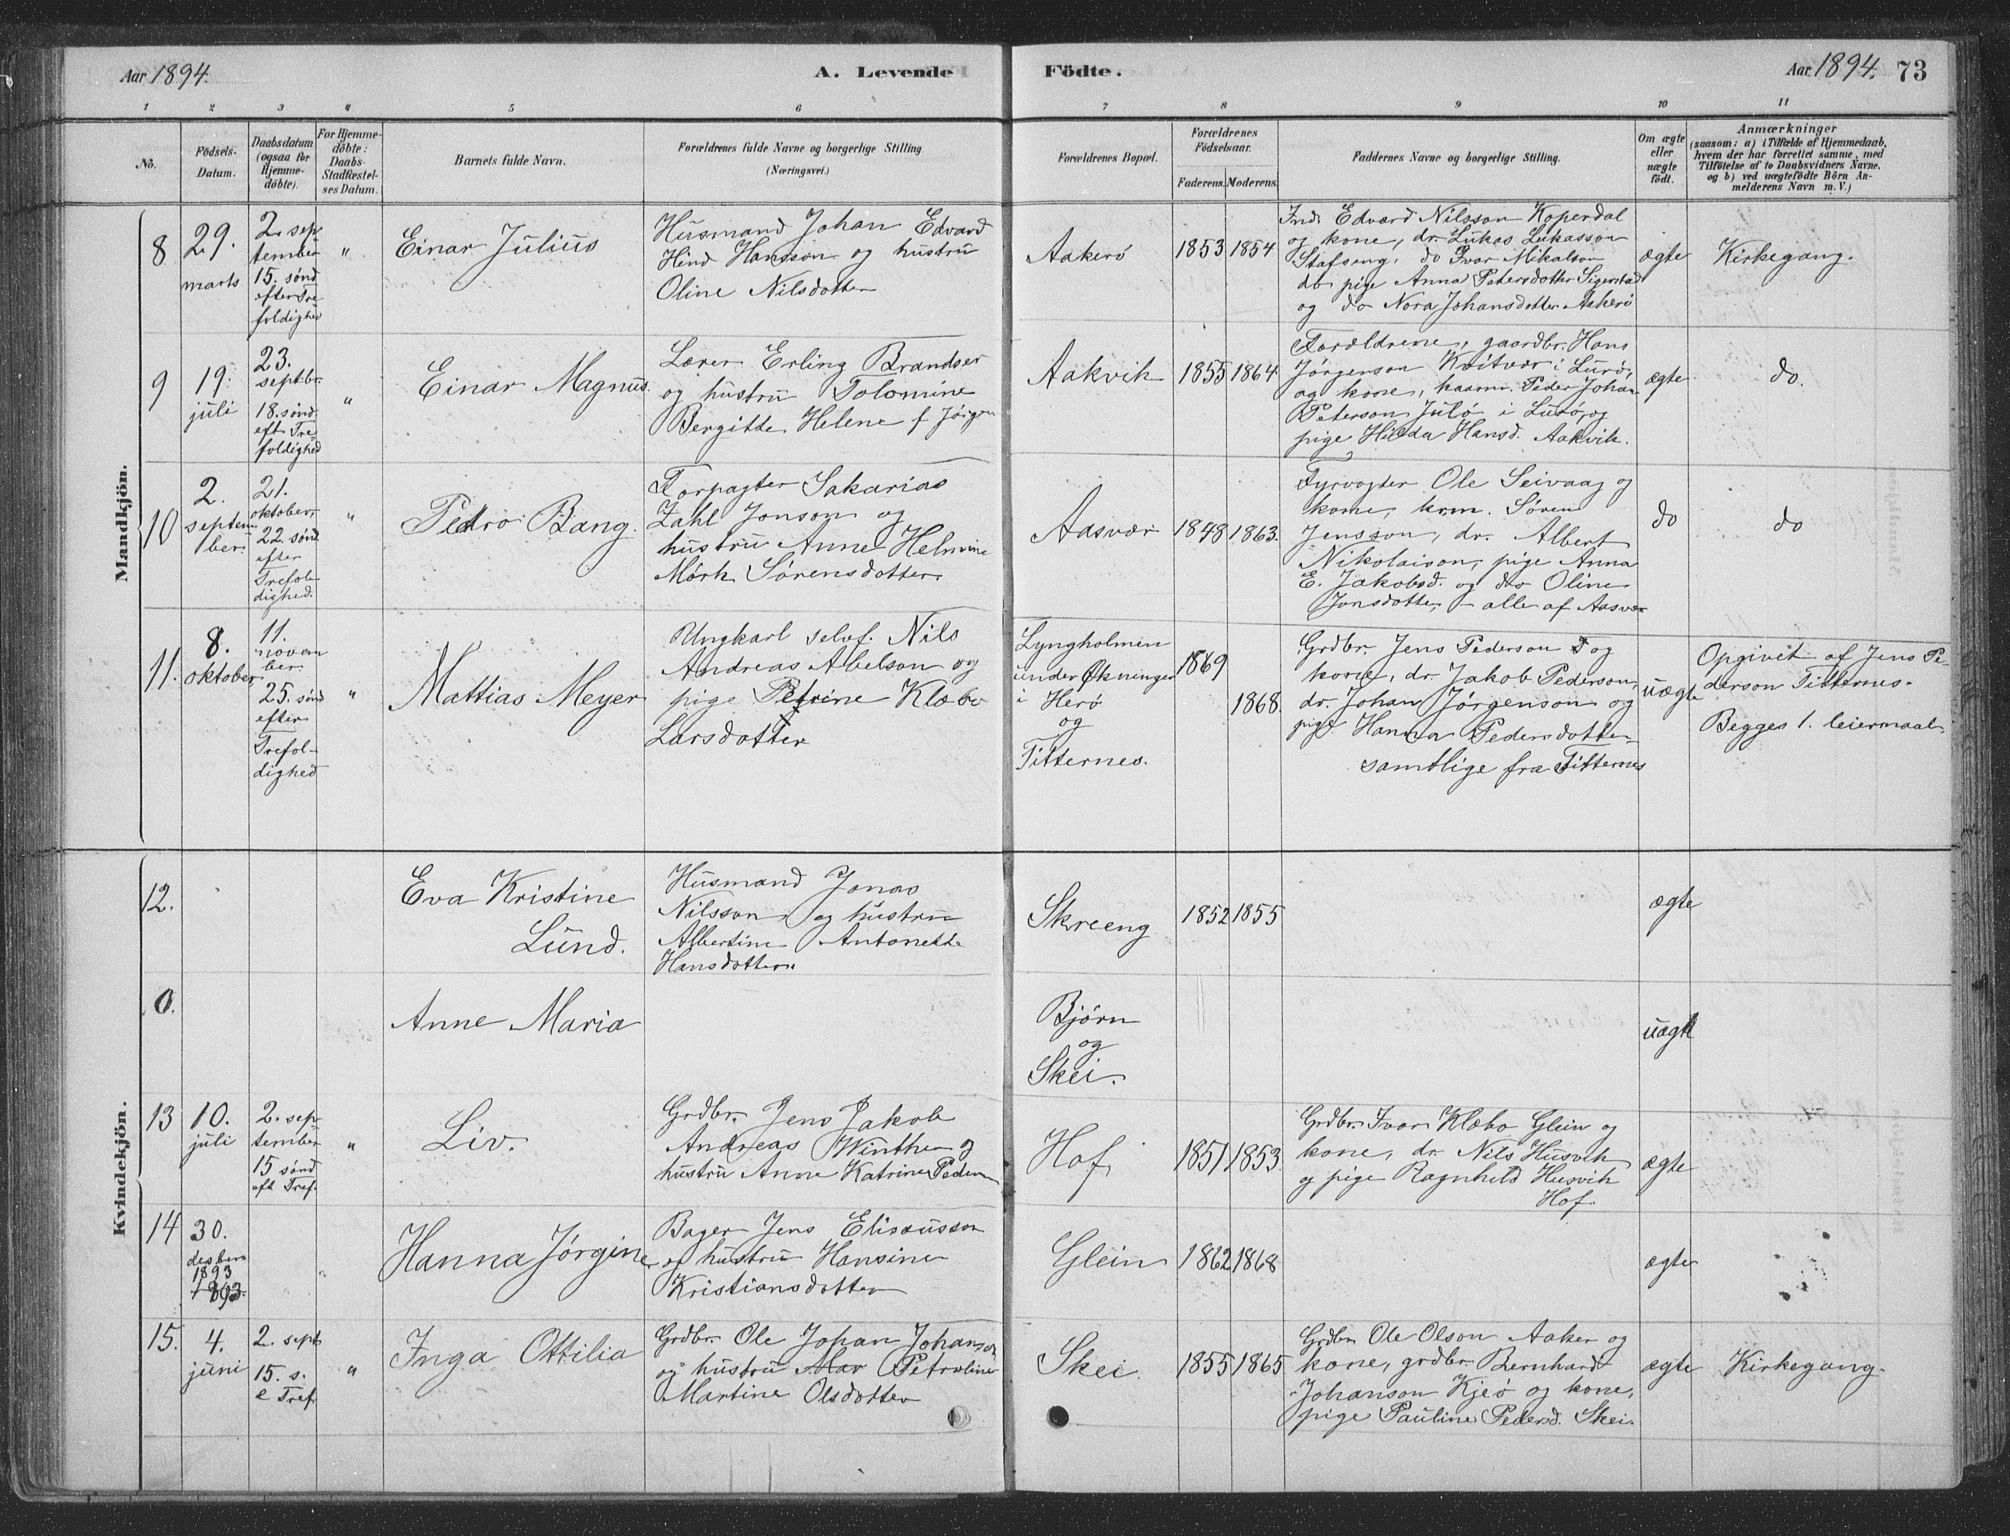 Aar 1894.
A. Levende
Födte.
Aar 1894. 73
1 2 3 4 5 6 7 8 9 10 11
No.
Födsels-
Datum.
Daabsdatum
(ogsaa for
Hjemme-
döbte).
For Hjemme-
döbte:
Daabs-
Stadfæstel-
ses Datum.
Barnets fulde Navn.
Forældrenes fulde Navne og borgerlige Stilling
(Næringsvei.)
Forældrenes Bopæl.
Forældrenes
Födselsaar.
Faderens. Moderens.
Faddernes Navne og borgerlige Stilling.
Om ægte
eller
uægte
födt.
Anmærkninger
(saasom: a) i Tilfælde af Hjemmedaab,
hvem der har forrettet samme, med
Tilföielse af to Daabsvidners Navne,
og b) ved uægtefödte Börn An-
melderens Navn m. V.)
Mandkjön.
8
29.
marts
2. sep
tember
15. sønd
efter Tre
foldighed
"
Einar Julius
Husmand Johan Edvard
Hind Hansson og hustru
Oline Nilsdotter
Aakerø
1853 1854
Ind. Edvard Nilsson Koperdal
og kone, dr. Lukas Lukasson
Stafseng, do Ivar Mikalson
do pige Anna Petersdotter Sigerstad
og do Nora Johansdotter Aakerø
ægte
Kirkegang.
9
19.
juli
23.
septbr.
18. sønd.
eft. Tre
foldighed
"
Einar Magnus
Lærer Erling Brandser
og hustru Tolomine
Bergitte Helene f Jørgen
Aakvik
1855 1864
Forældrene, gaardbr. Hans
Jørgenson Kvitvær i Lurø,
og kone, kaarm. Peder Johan
Peterson Julø i Lurø, og
pige Hilda Hansd. Aakvik.
ægte
do.
10
2.
septem
ber.
21.
oktober,
22. sønd.
efter
Trefol-
dighed.
"
Pedro Bang.
Forpagter Sakarias
Zahl Jonson og
hustru Anne Helmine
Mørk Sørensdotter
Aasvær
1848 1863.
Fyrvogter Ole Seivaag og
kone, krm. Søren
Jensson, dr. Albert
Nikolaison, pige Anna
E. Jakobsd. og do Oline
Jonsdotter, - alle af Aasvær
do
do
11.
8.
oktober
11.
novem
ber
25. sønd
efter
Trefol-
dighed
"
Mattias Meyer
Ungkarl selvf. Nils
Andreas Abelson og
pige Petrine Klæbo
Larsdotter
Lyngholmen
under Økningen
i Herø
og
Titternes.
1869
1868.
Grdbr. Jens Pederson T og
kone, dr. Jakob Pederson,
dr. Johan Jørgenson og
pige Hanna Pedersdotter
samtlige fra Titternes
uægte
Opgivet af Jens Pe-
derson Titternes.
Begges 1. leiermaal.
Kvindekjön.
12.
Eva Kristine
Lund.
Husmand Jonas
Nilsson og hustru
Albertine Antonette
Hansdotter.
Skreeng
1852 1855
ægte
0.
Anne Maria
Bjørn
og
Skei.
uægte
13
10.
juli
2. sep
tember
15 sønd
eft Tref.
"
Liv.
Grdbr. Jens Jakob
Andreas Winther og
hustru Anne Katrine Peder
Hof
1851 1853.
Grdbr. Ivar Klæbo Glein og
kone, dr. Nils Husvik
og pige Ragnhild Husvik
Hof.
ægte
14
30.
desbr.
1893
1893.
"
Hanna Jørgine
Bager Jens Elisæusson
og hustru Hansine
Kristiansdotter
Glein
1862 1868
ægte
15.
4.
juni
2. sept
15. s.
e Tref.
"
Inga Ottilia
Grdbr. Ole Johan Johanson
og hustru Mar Petroline
Martine Olsdotter
Skei.
1855 1865
Grdbr. Ole Olson Aaker og
kone, grdbr. Bernhard
Johanson Kjeø og kone,
pige Pauline Pedersd. Skei.
ægte
Kirkegang.